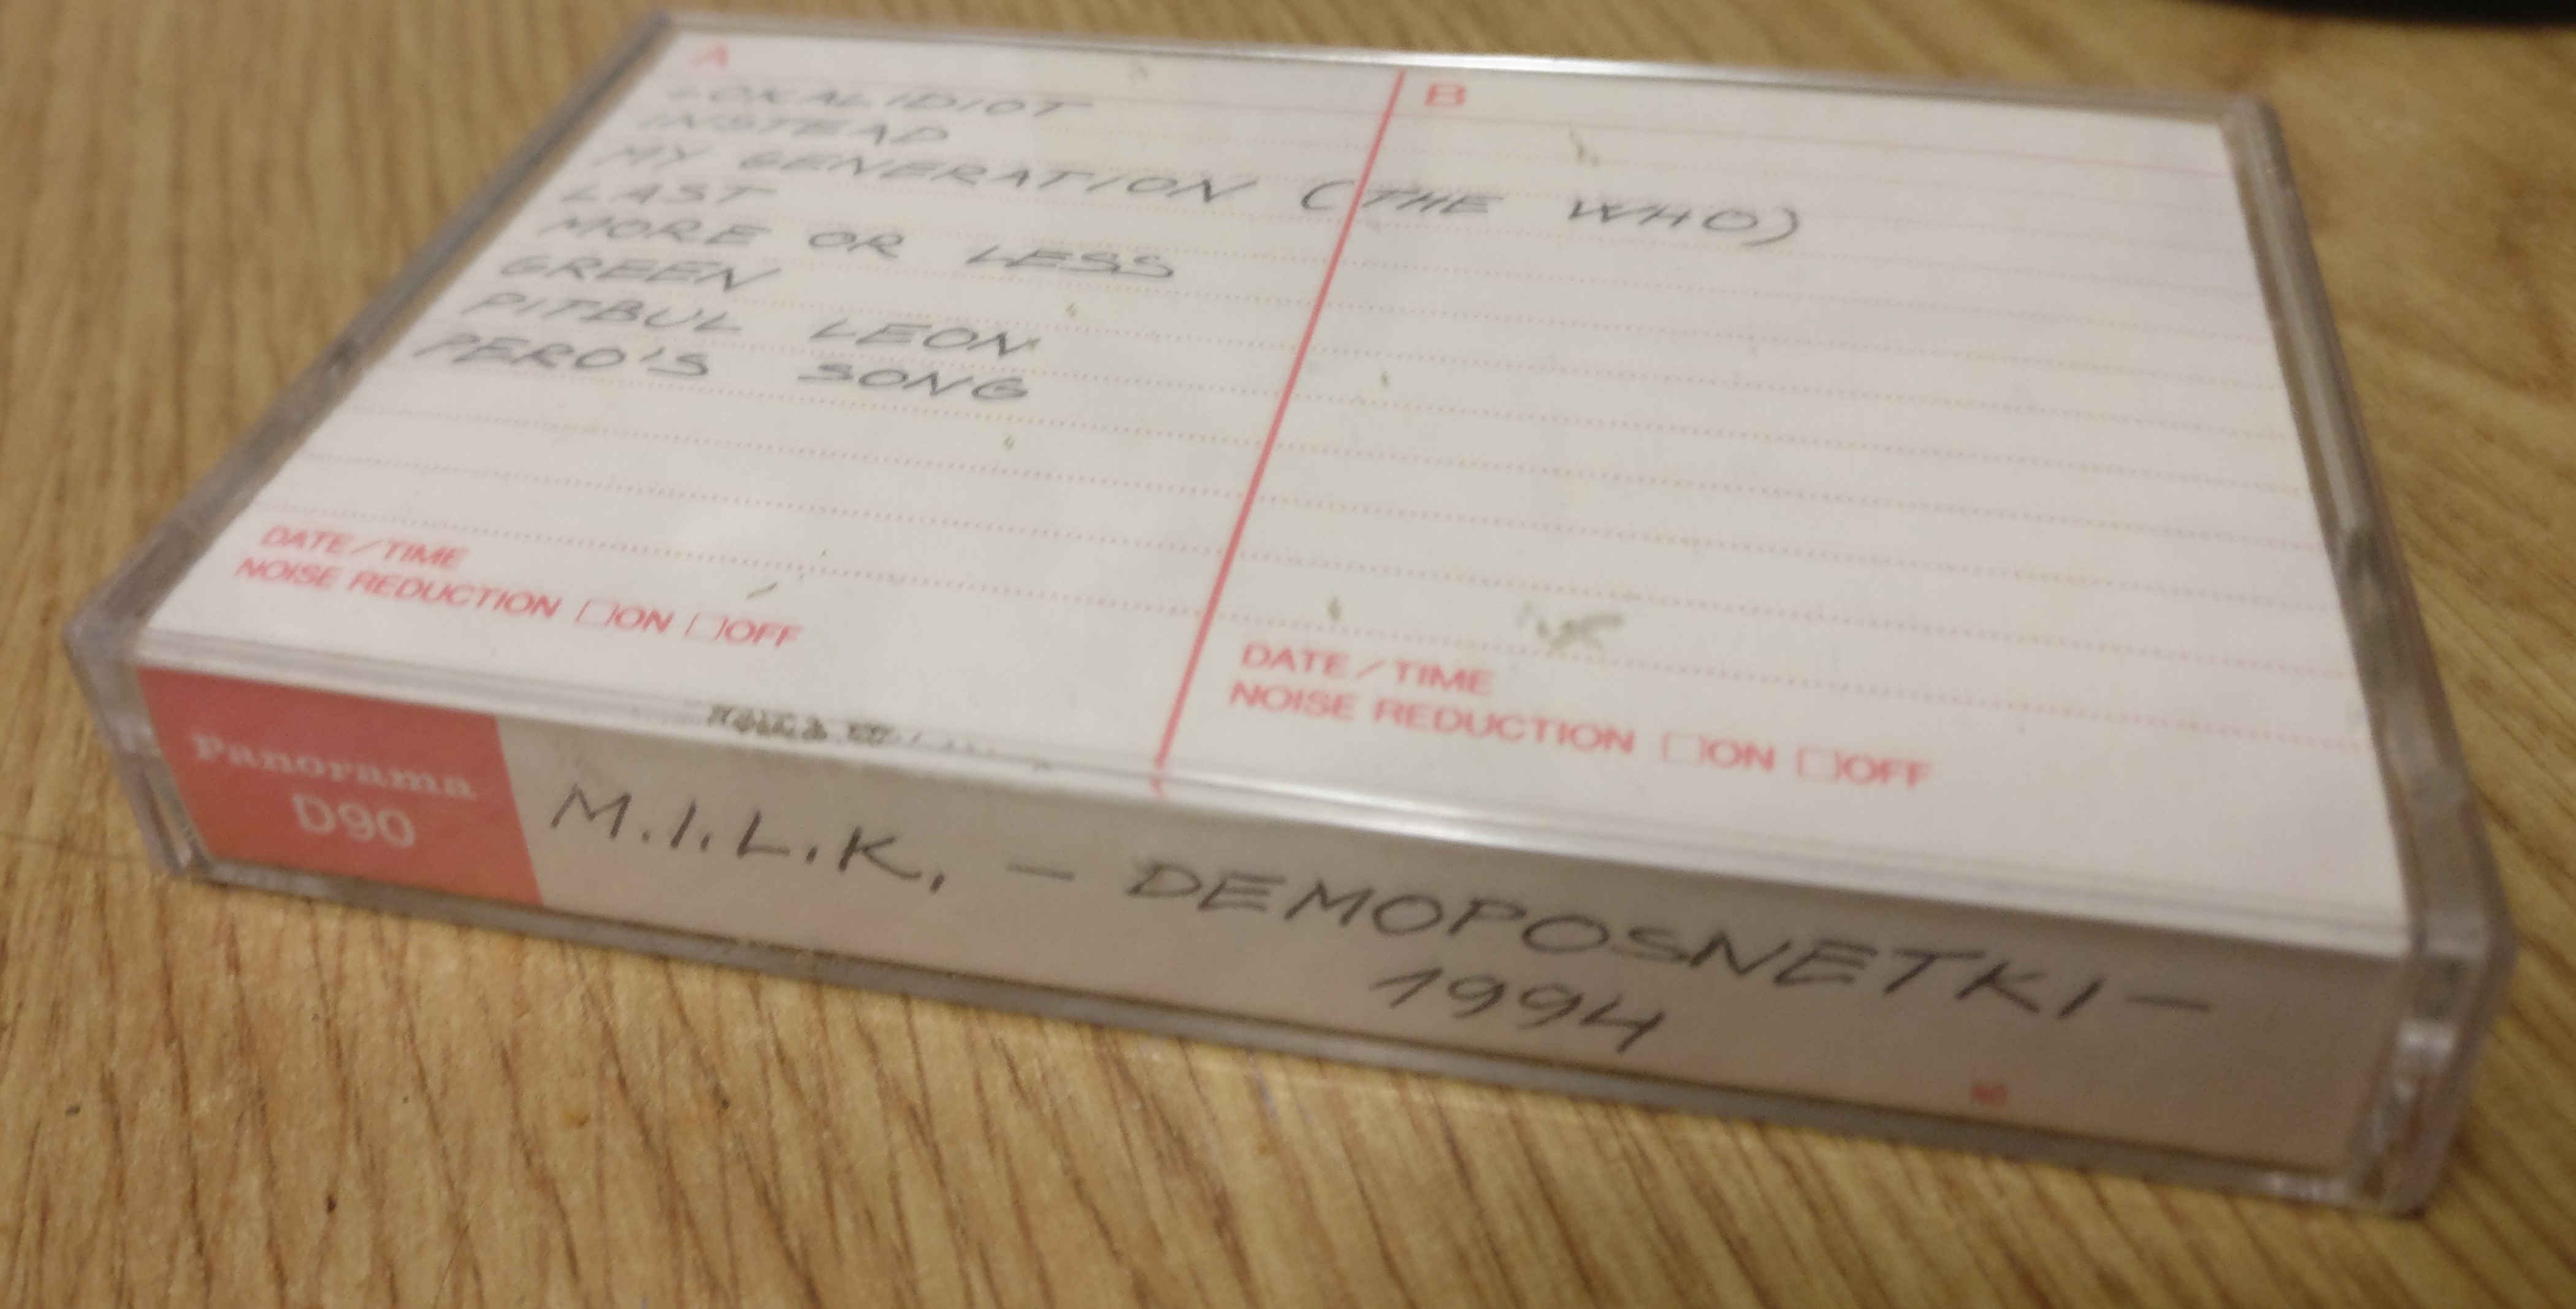 A
LOKALIDIOT
INSTEAD
MY GENERATION (THE WHO)
LAST
MORE OR LESS
GREEN
PITBUL LEON
PERO'S SONG
DATE/TIME
NOISE REDUCTION □ON □OFF
B
DATE/TIME
NOISE REDUCTION □ON □OFF
Panorama
D90
M.I.L.K. - DEMOPOSNETKI -
1994